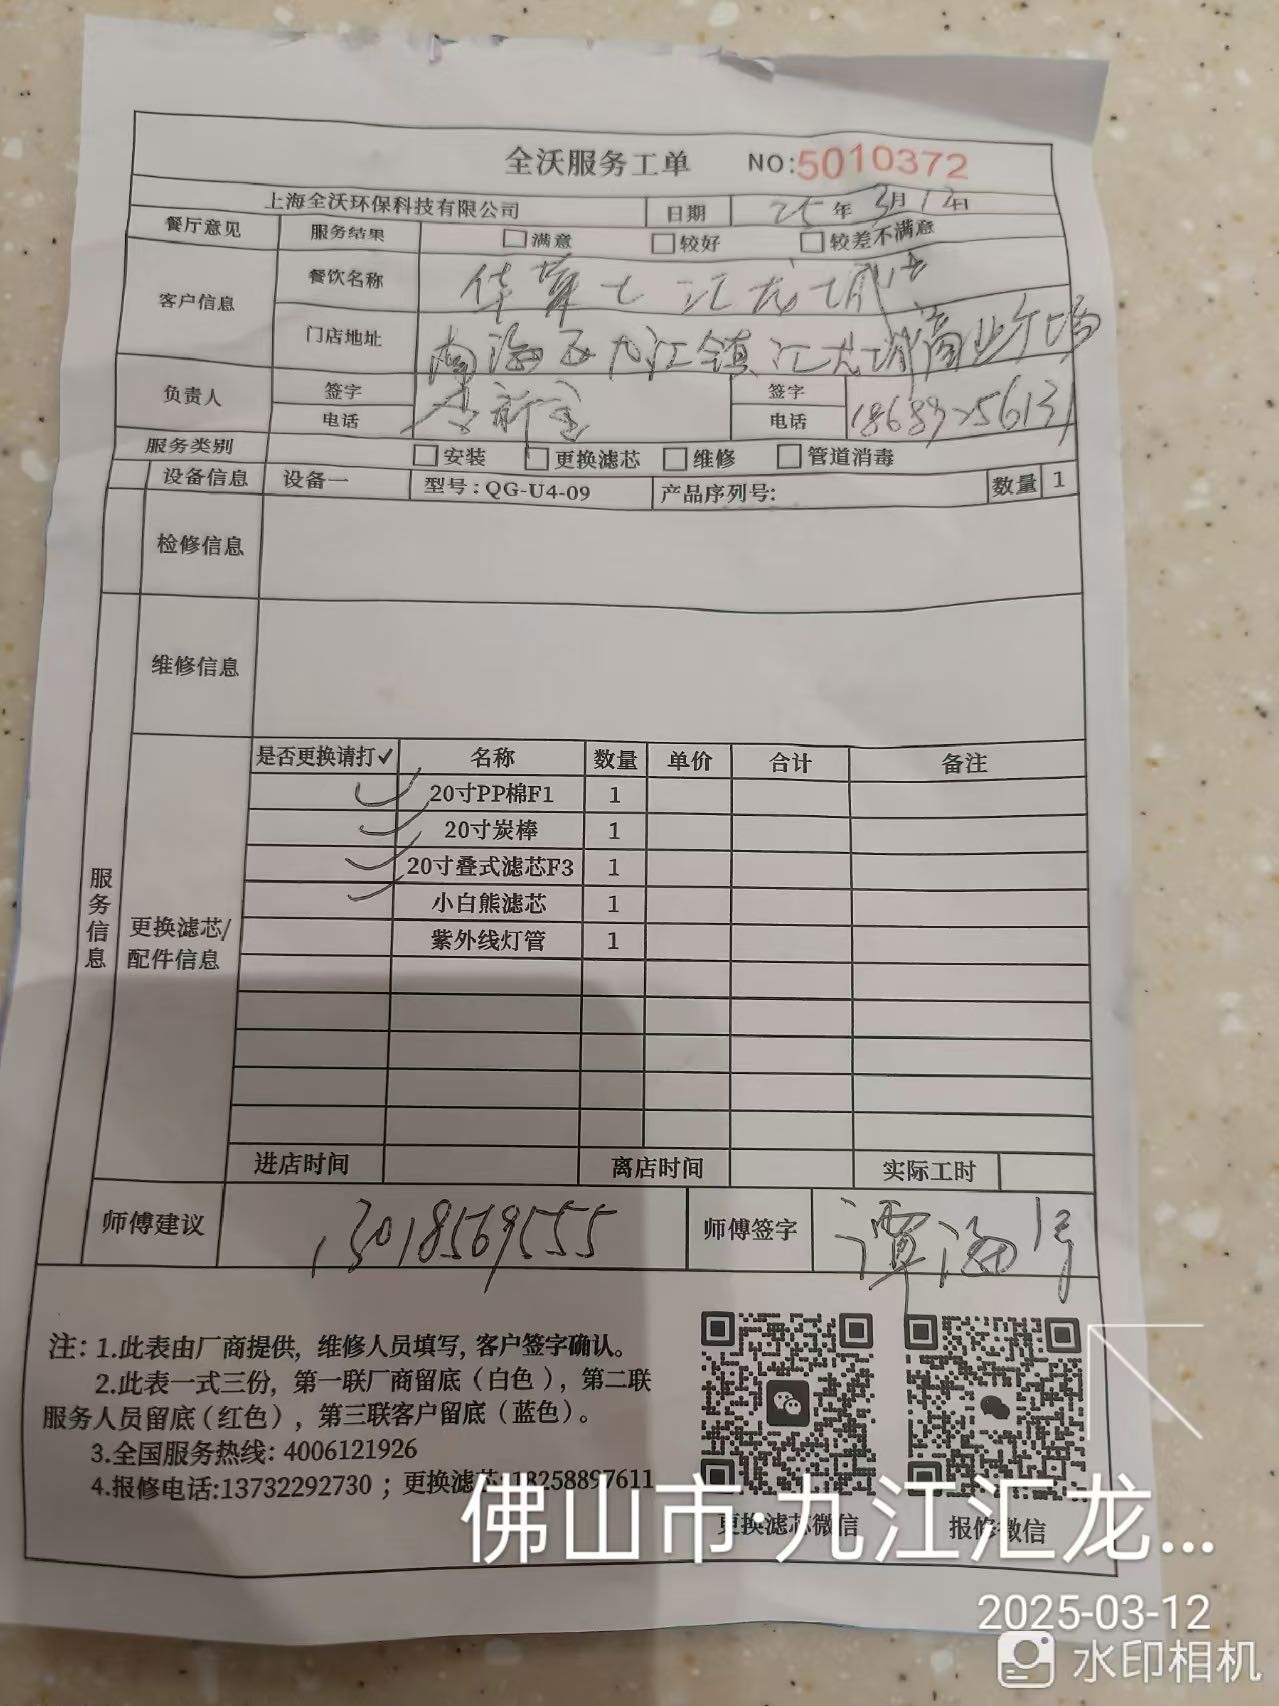 全沃服务工单 NO:5010372
上海全沃环保科技有限公司 日期 25年3月12日
餐厅意见 服务结果 满意 较好 较差不满意
客户信息 餐饮名称 华莱士汇龙城店
门店地址 南海区九江镇汇龙城商业广场
负责人 签字 签字
电话 电话 18689256131
服务类别 安装 更换滤芯 维修 管道消毒
设备信息 设备一 型号:QG-U4-09 产品序列号: 数量 1
检修信息
维修信息
服务信息
更换滤芯/
配件信息
是否更换请打✓ 名称 数量 单价 合计 备注
✓ 20寸PP棉F1 1
✓ 20寸炭棒 1
✓ 20寸叠式滤芯F3 1
✓ 小白熊滤芯 1
紫外线灯管 1
进店时间 离店时间 实际工时
师傅建议 13018569555 师傅签字 谭海
注: 1.此表由厂商提供, 维修人员填写, 客户签字确认。
2.此表一式三份, 第一联厂商留底(白色), 第二联
服务人员留底(红色), 第三联客户留底(蓝色)。
3.全国服务热线: 4006121926
4.报修电话:13732292730 ; 更换滤芯:18258897611
更换滤芯微信 报修微信
佛山市·九江汇龙...
2025-03-12
水印相机